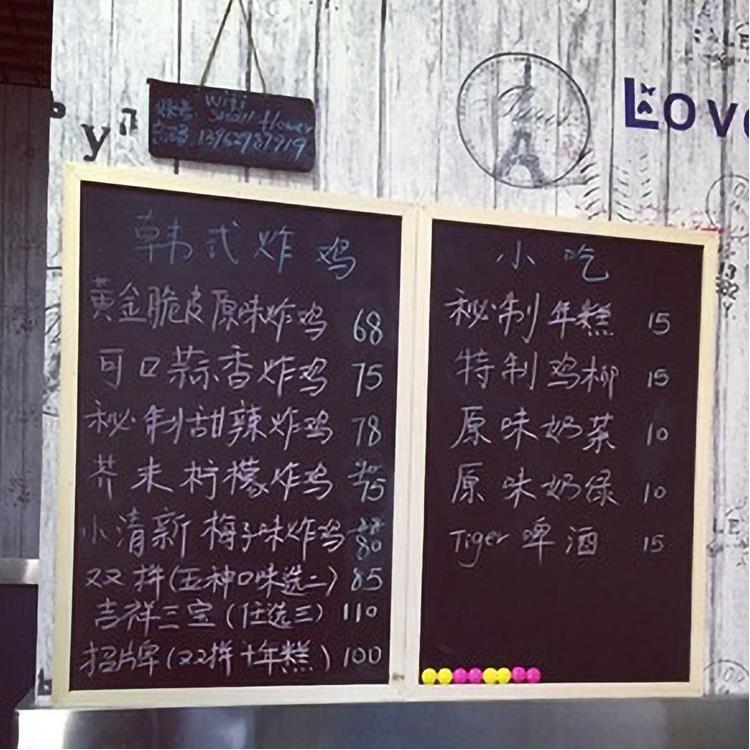 wifi
账号 Small Flower
密码 13962987919
y
Paris
LOVE
韩式炸鸡
黄金脆皮原味炸鸡 68
可口蒜香炸鸡 75
秘制甜辣炸鸡 78
芥末柠檬炸鸡 75
小清新梅子味炸鸡 80
双拼(五神口味选二) 85
吉祥三宝(任选三) 110
招牌(双拼+年糕) 100
小吃
秘制年糕 15
特制鸡柳 15
原味奶茶 10
原味奶绿 10
Tiger 啤酒 15